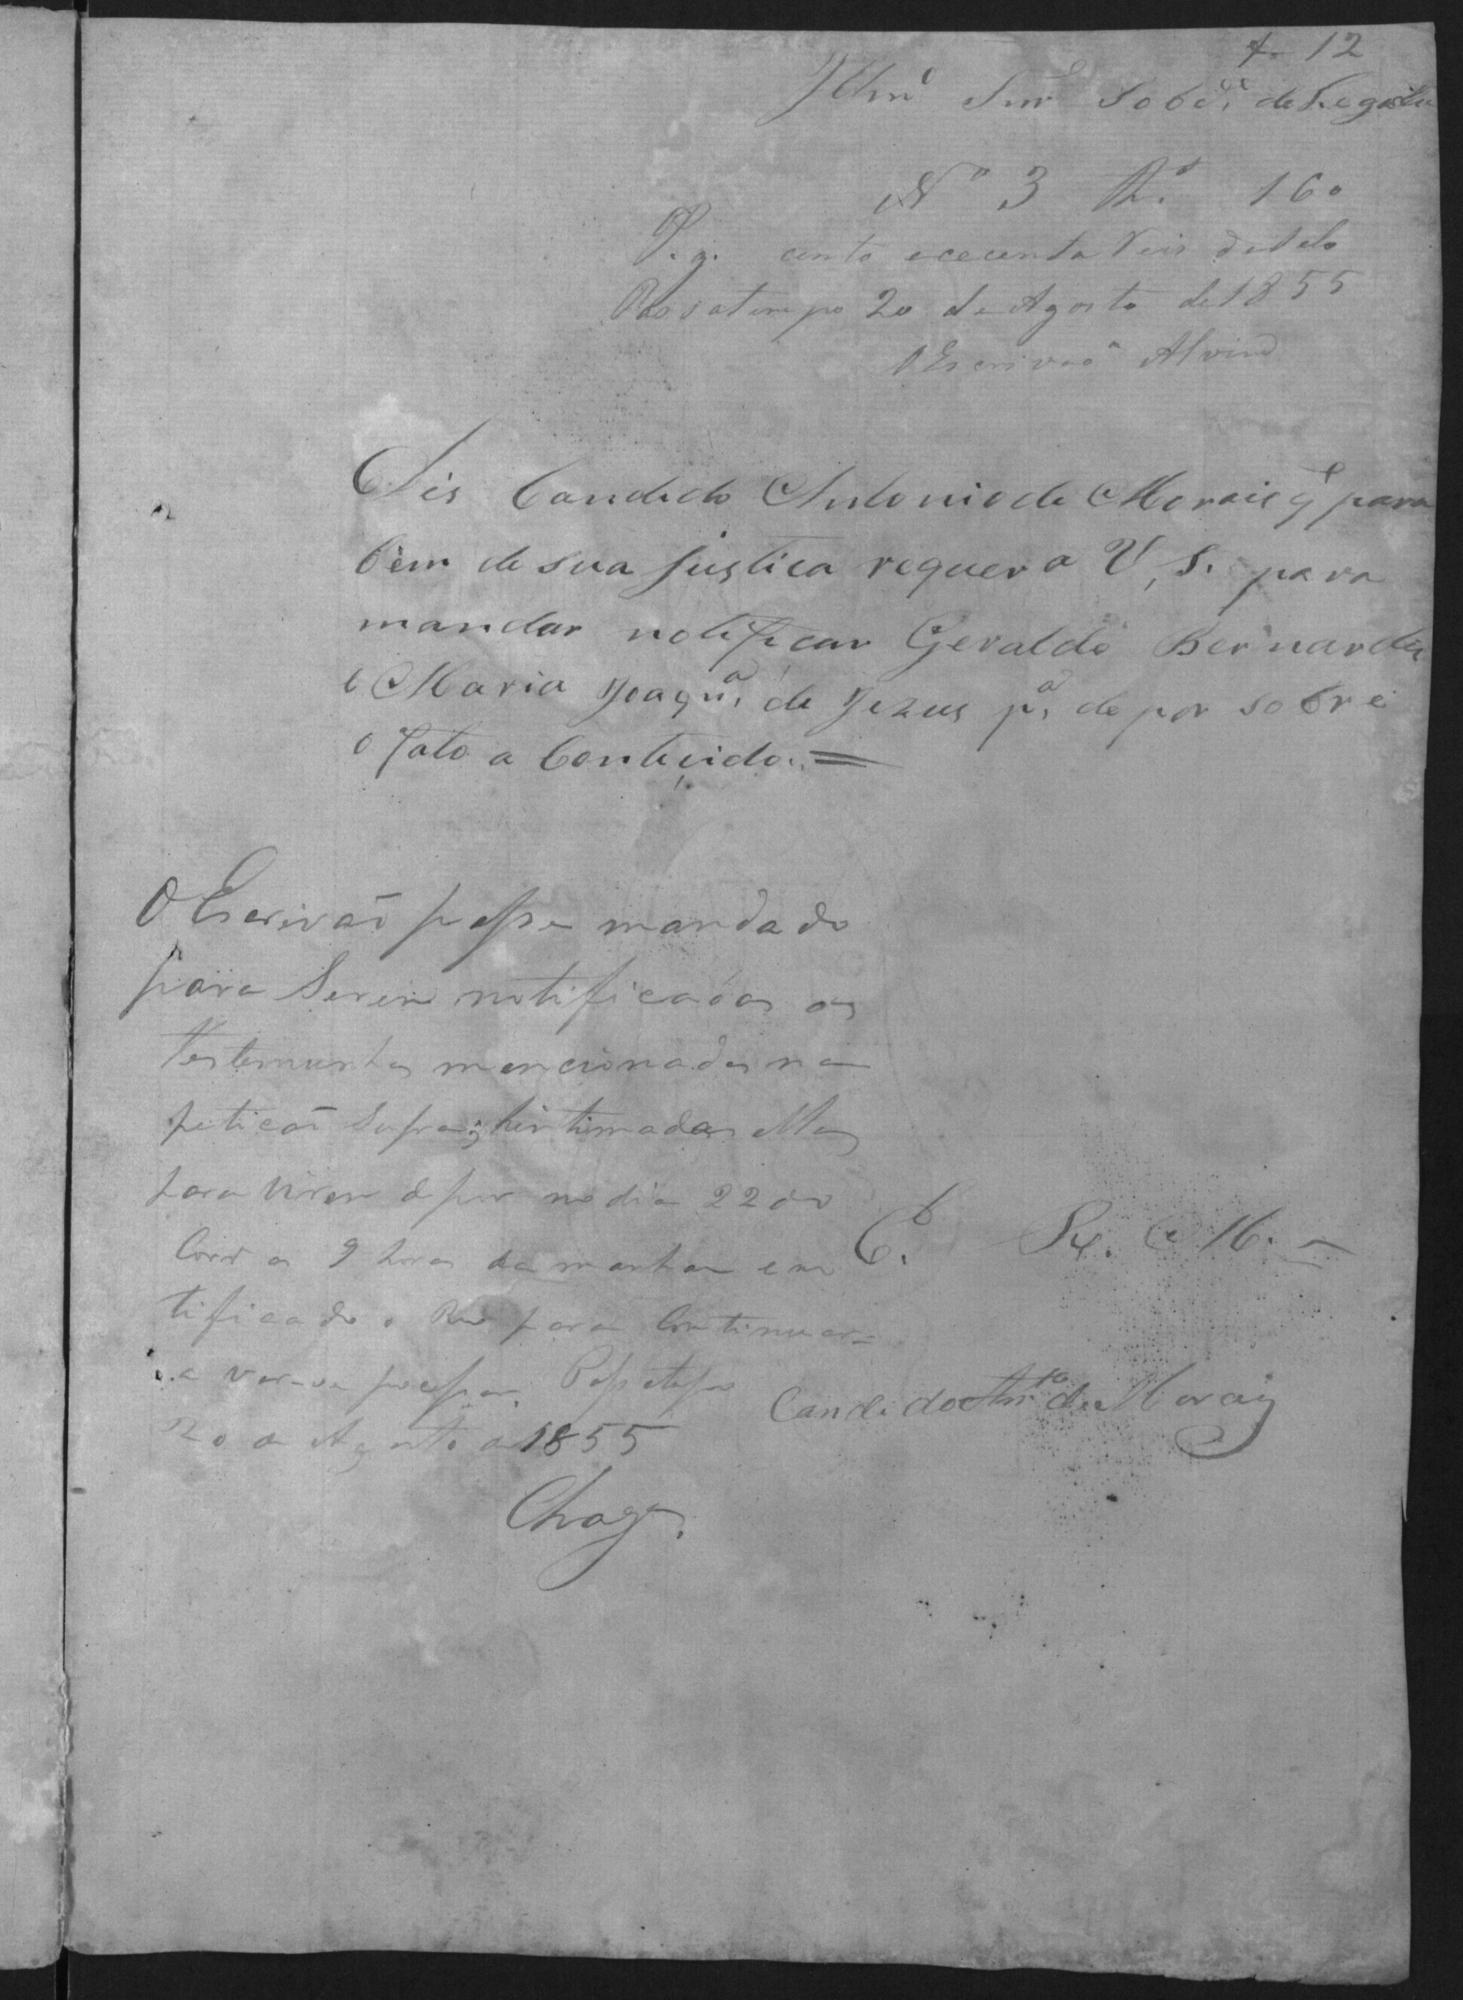 f. 12
Illmº Snr Sobdº delegado
Nº 3 R.º 160
P. g. centoececenta reis deSelo
Passatempo 20 de Agosto de 1855
OEscrivaõ Alvim
Dis Candido Antonio de Morais q para
bem de sua justica requer a V, S. para
mandar notificar Geraldo Bernardes
e Maria Joaqnª de Jezus pª depor sobre
o fato a Conteçido. =
O Escrivaõ passe mandado
para Serem notificadas as
testemunhas mencionadas na
peticaõ Supra;
para virem depor no dia 22 do
Corr as 9 horas da manha e no
tificado o Reo para Continuar=
a ver-se Passatpo
20 de Agosto de 1855
Chagas.
E. R. Mce
Candido Antº de Morais